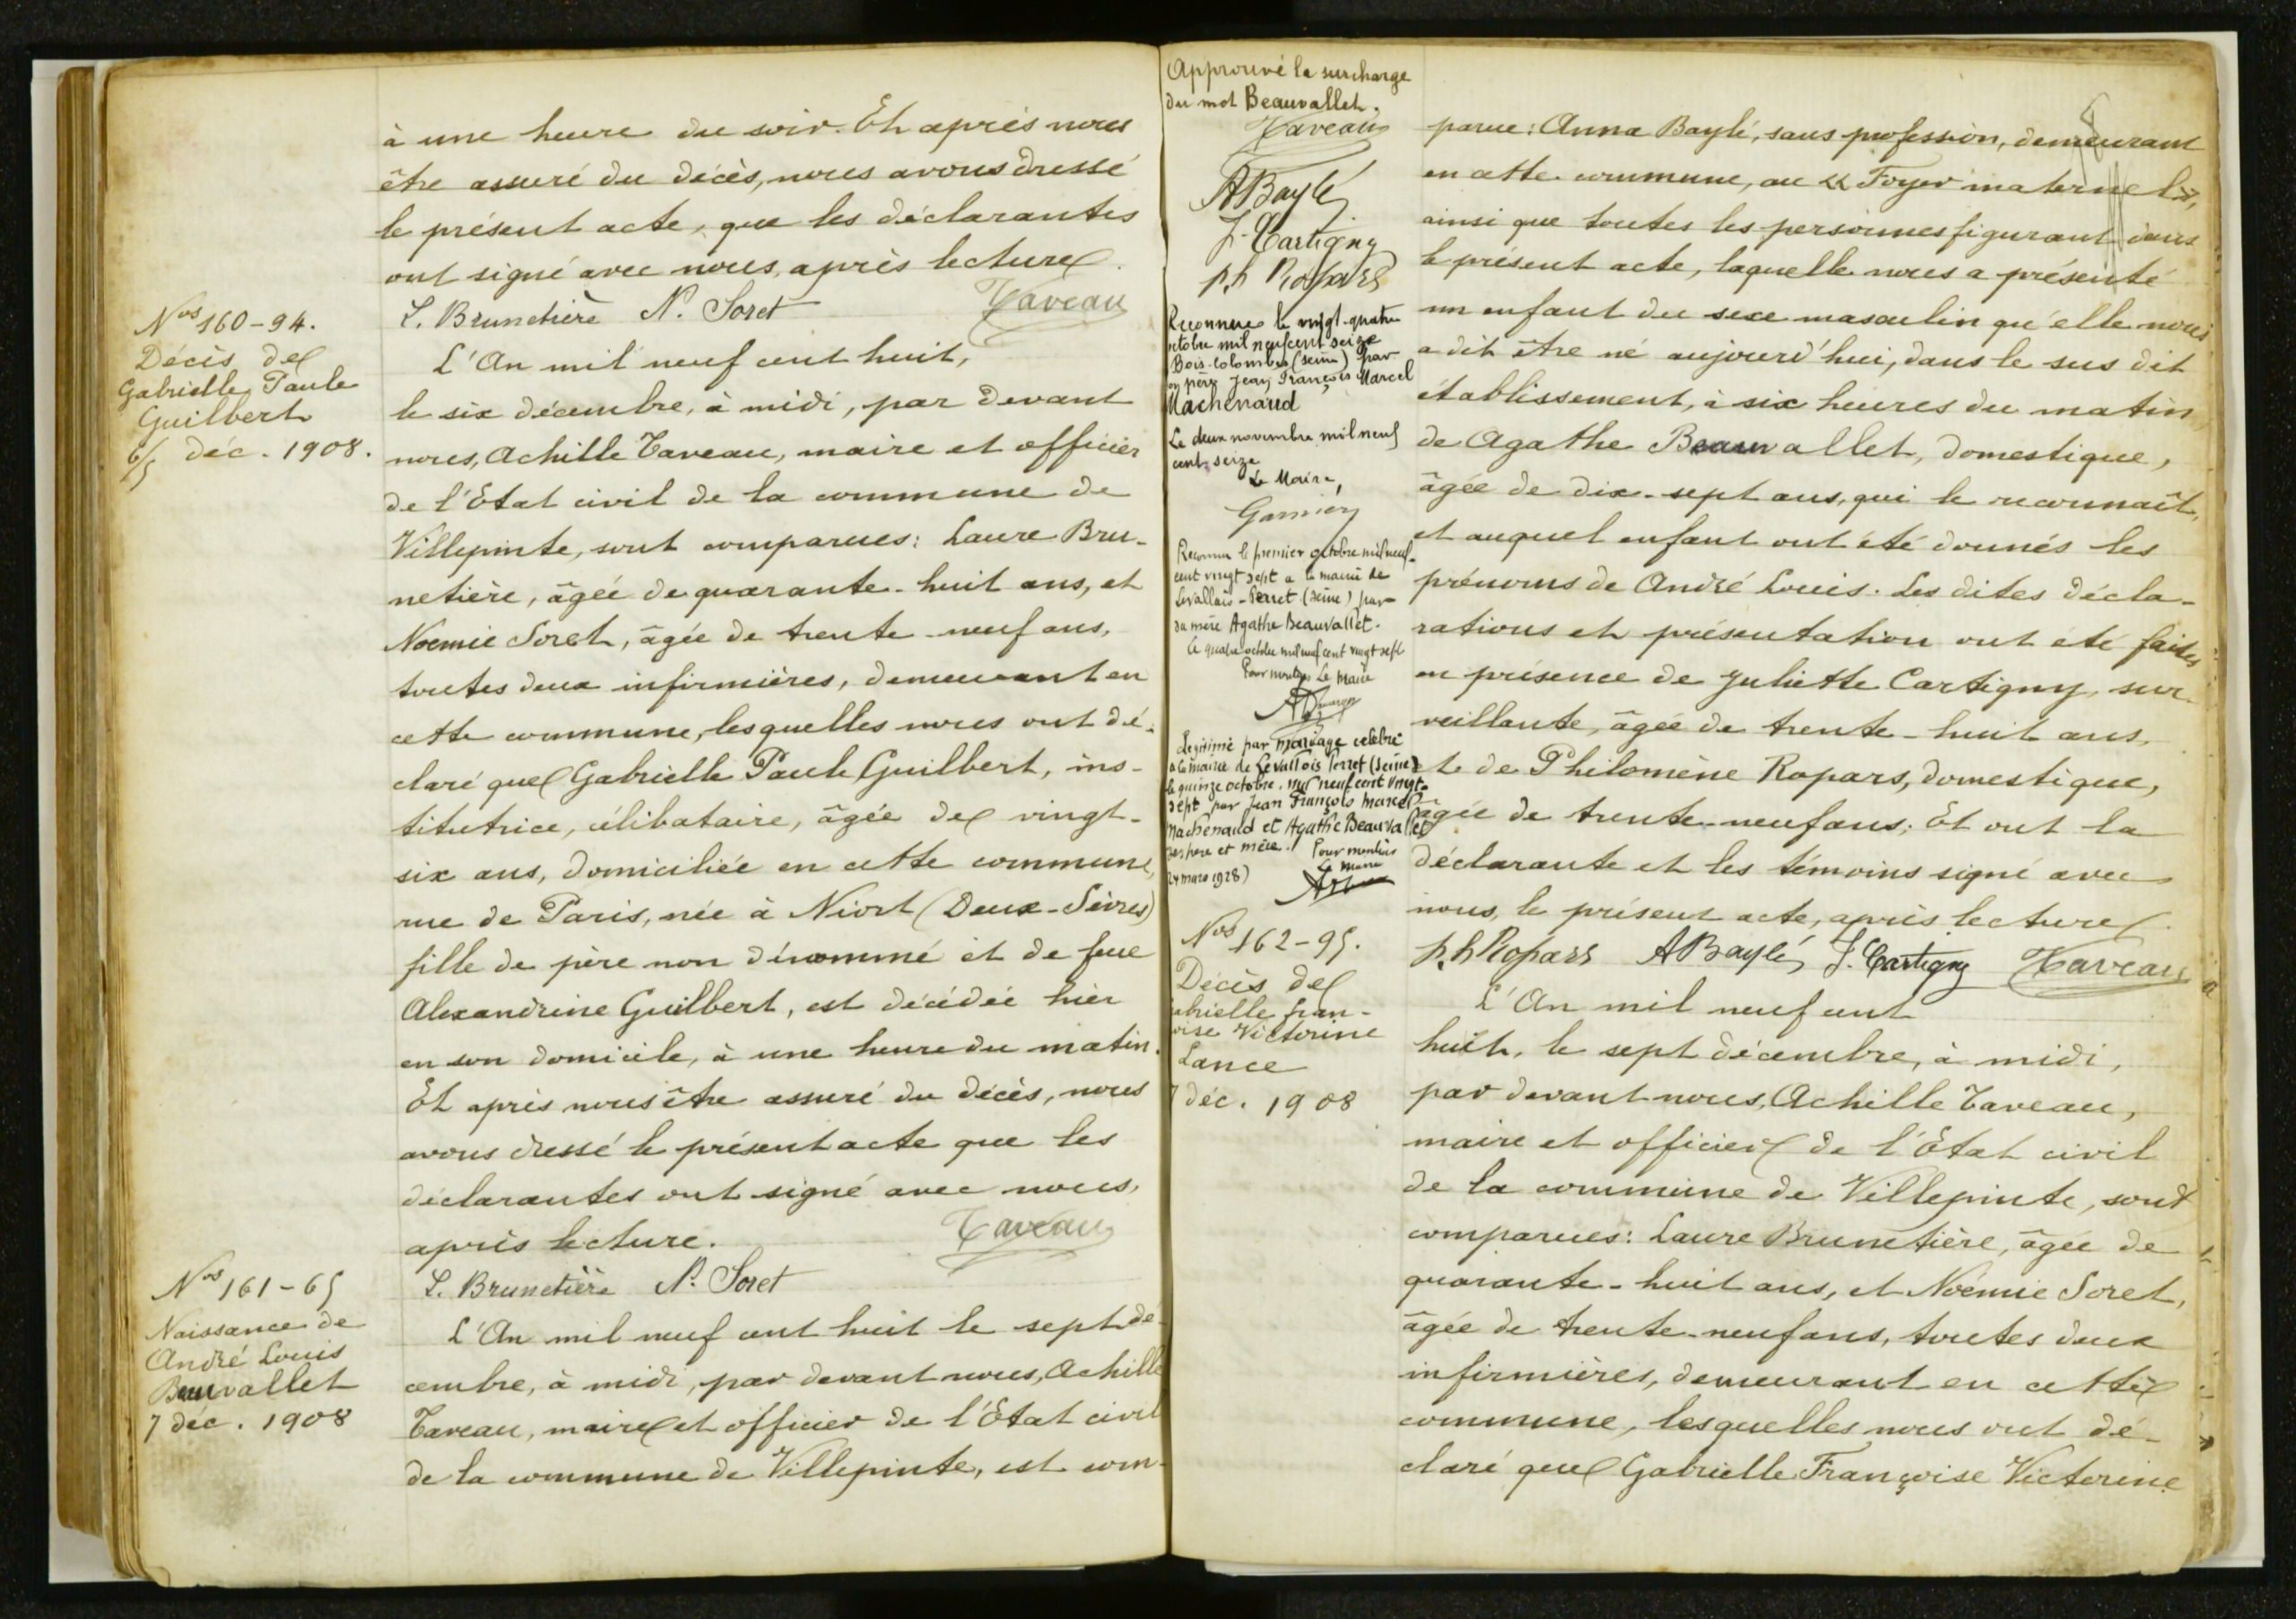 à une heure du soir. Et après nous
être assuré du décès, nous avons dressé
le présent acte, que les déclarantes
ont signé avec nous, après lecture.
L. Brunetière N. Soret Taveau
Nos 160-94.
Décès de
Gabrielle Paule
Guilbert
6/5 déc. 1908.
L'An mil neuf cent huit,
le six décembre, à midi, par devant
nous, Achille Taveau, maire et officier
de l'Etat civil de la commune de
Villepinte, sont comparues: Laure Bru-
netière, âgée de quarante-huit ans, et
Noemie Soret, âgée de trente-neuf ans,
toutes deux infirmières, demeurant en
cette commune, lesquelles nous ont dé-
claré que Gabrielle Paule Guilbert, ins-
titutrice, célibataire, âgée de vingt-
six ans, domiciliée en cette commune,
rue de Paris, née à Niort (Deux-Sèvres)
fille de père non dénommé et de feue
Alexandrine Guilbert, est décédée hier
en son domicile, à une heure du matin.
Et après nous être assuré du décès, nous
avons dressé le présent acte que les
déclarantes ont signé avec nous,
après lecture. Taveau
L. Brunetière N. Soret
Nos 161-65
Naissance de
André Louis
Beauvallet
7 déc. 1908
L'An mil neuf cent huit le sept dé-
cembre, à midi, par devant nous, Achille
Taveau, maire et officier de l'Etat civil
de la commune de Villepinte, est com-
Approuvé la surcharge
du mot Beauvallet.
Taveau
A Baylé
J. Cartigny
Ph Ropars
Reconnu le vingt-quatre
octobre mil neuf cent seize
Bois-Colombes (Seine) par
son père Jean François Marcel
Machenaud
Le deux novembre mil neuf
cent seize
Le Maire,
Reconnu le premier octobre mil neuf-
cent vingt sept a la mairie de
Levallois-Perret (Seine) par
sa mère Agathe Beauvallet.
Le quatre octobre mil neuf cent vingt sept
Pour mention Le Maire
Légitimé par mariage célébré
a la mairie de Levallois Perret (Seine)
le quinze octobre mil neuf cent vingt-
sept par Jean François Marcel
Machenaud et Agathe Beauvallet
ses père et mère. Pour mention
24 mars 1928) Le Maire
Nos 162-95.
Décès de
Gabrielle Fran-
çoise Victorine
Lance
7 déc. 1908
parue: Anna Baylé, sans profession, demeurant
en cette commune, au « Foyer maternel »,
ainsi que toutes les personnes figurant dans
le présent acte, laquelle nous a présenté
un enfant du sexe masculin qu'elle nous
a dit être né aujourd'hui, dans le sus dit
établissement, à six heures du matin,
de Agathe Beauvallet, domestique,
âgée de dix-sept ans, qui le reconnaît,
et auquel enfant ont été donnés les
prénoms de André Louis. Les dites décla-
rations et présentation ont été faites
en présence de Juliette Cartigny, sur-
veillante, âgée de trente-huit ans,
et de Philomène Ropars, domestique,
âgée de trente-neuf ans; Et ont la
déclarante et les témoins signé avec
nous, le présent acte, après lecture.
Ph Ropars A Baylé J. Cartigny Taveau
L'An mil neuf cent
huit, le sept décembre, à midi,
par devant nous, Achille Taveau,
maire et officier de l'Etat civil
de la commune de Villepinte, sont
comparues: Laure Brunetière, âgée de
quarante-huit ans, et Noémie Soret,
âgée de trente-neuf ans, toutes deux
infirmières, demeurant en cette
commune, lesquelles nous ont dé-
claré que Gabrielle Françoise Victorine